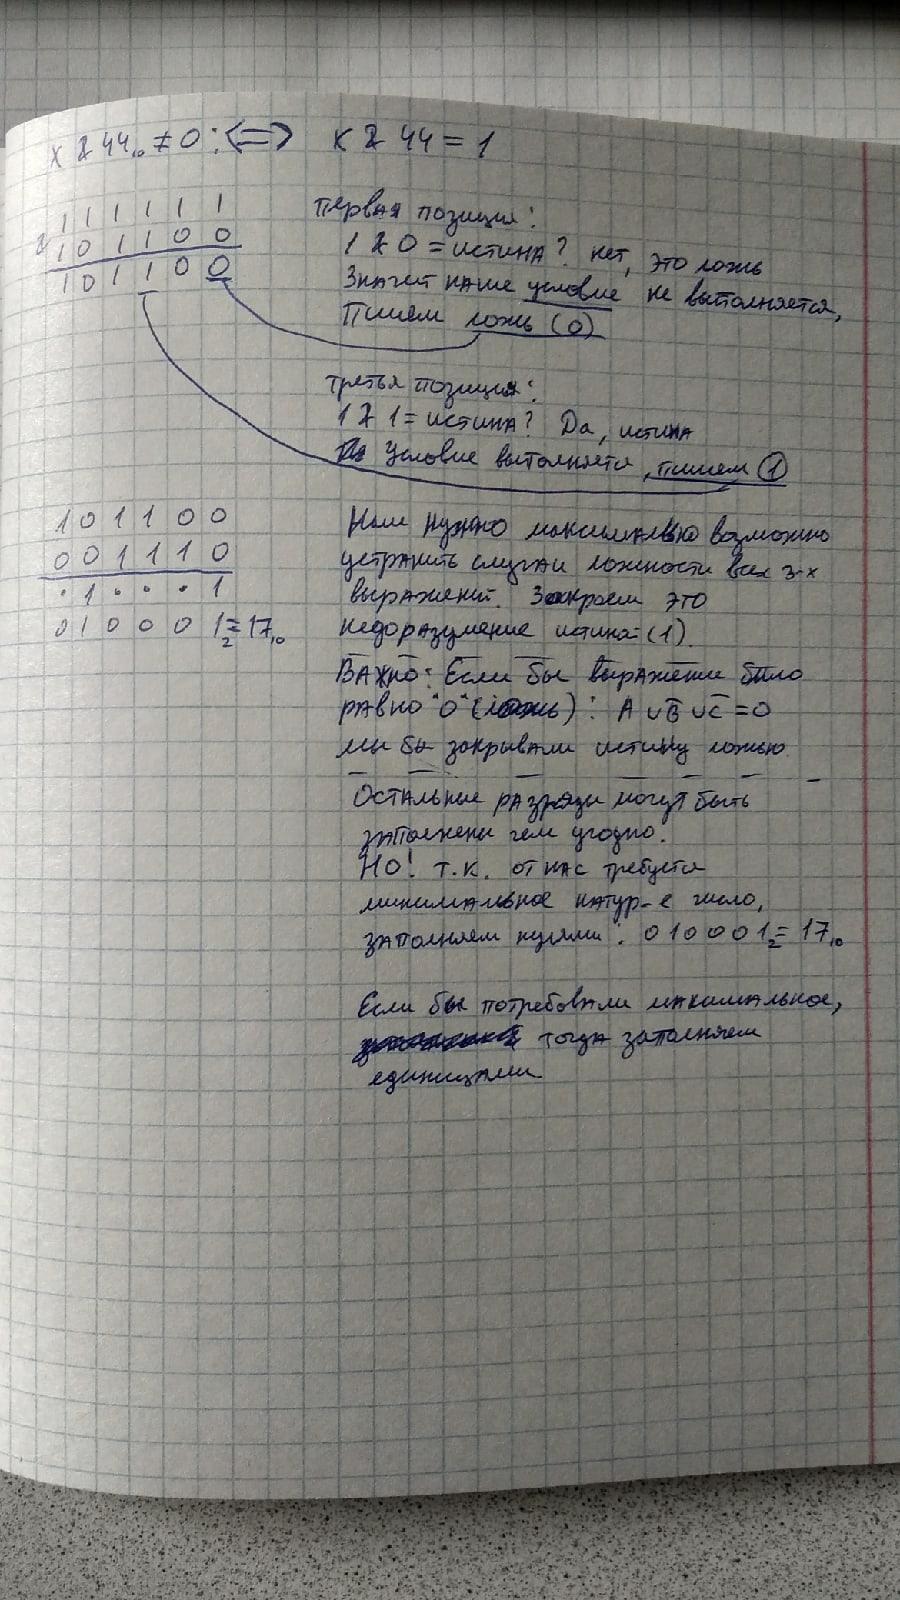 X & 44₁₀ ≠ 0 : <=> X & 44 = 1
1 1 1 1 1 1
& 1 0 1 1 0 0
1 0 1 1 0 0
Первая позиция:
1 & 0 = истина? нет, это ложь
Значит наше условие не выполняется,
Пишем ложь (0)
третья позиция:
1 & 1 = истина? Да, истина
Условие выполняется, пишем 1
1 0 1 1 0 0
0 0 1 1 1 0
· 1 · · · 1
0 1 0 0 0 1₂ = 17₁₀
Нам нужно максимально возможно
устранить случаи ложности всех 3-х
выражений. Закроем это
недоразумение истиной (1).
Важно: Если бы выражение было
равно "0" (ложь): A ∪ B̄ ∪ C̄ = 0
мы бы закрывали истину ложью
Остальные разряды могут быть
заполнены чем угодно.
НО! т.к. от нас требуется
минимальное натур-е число,
заполняем нулями: 0 1 0 0 0 1₂ = 17₁₀
Если бы потребовали максимальное,
тогда заполняем
единицами